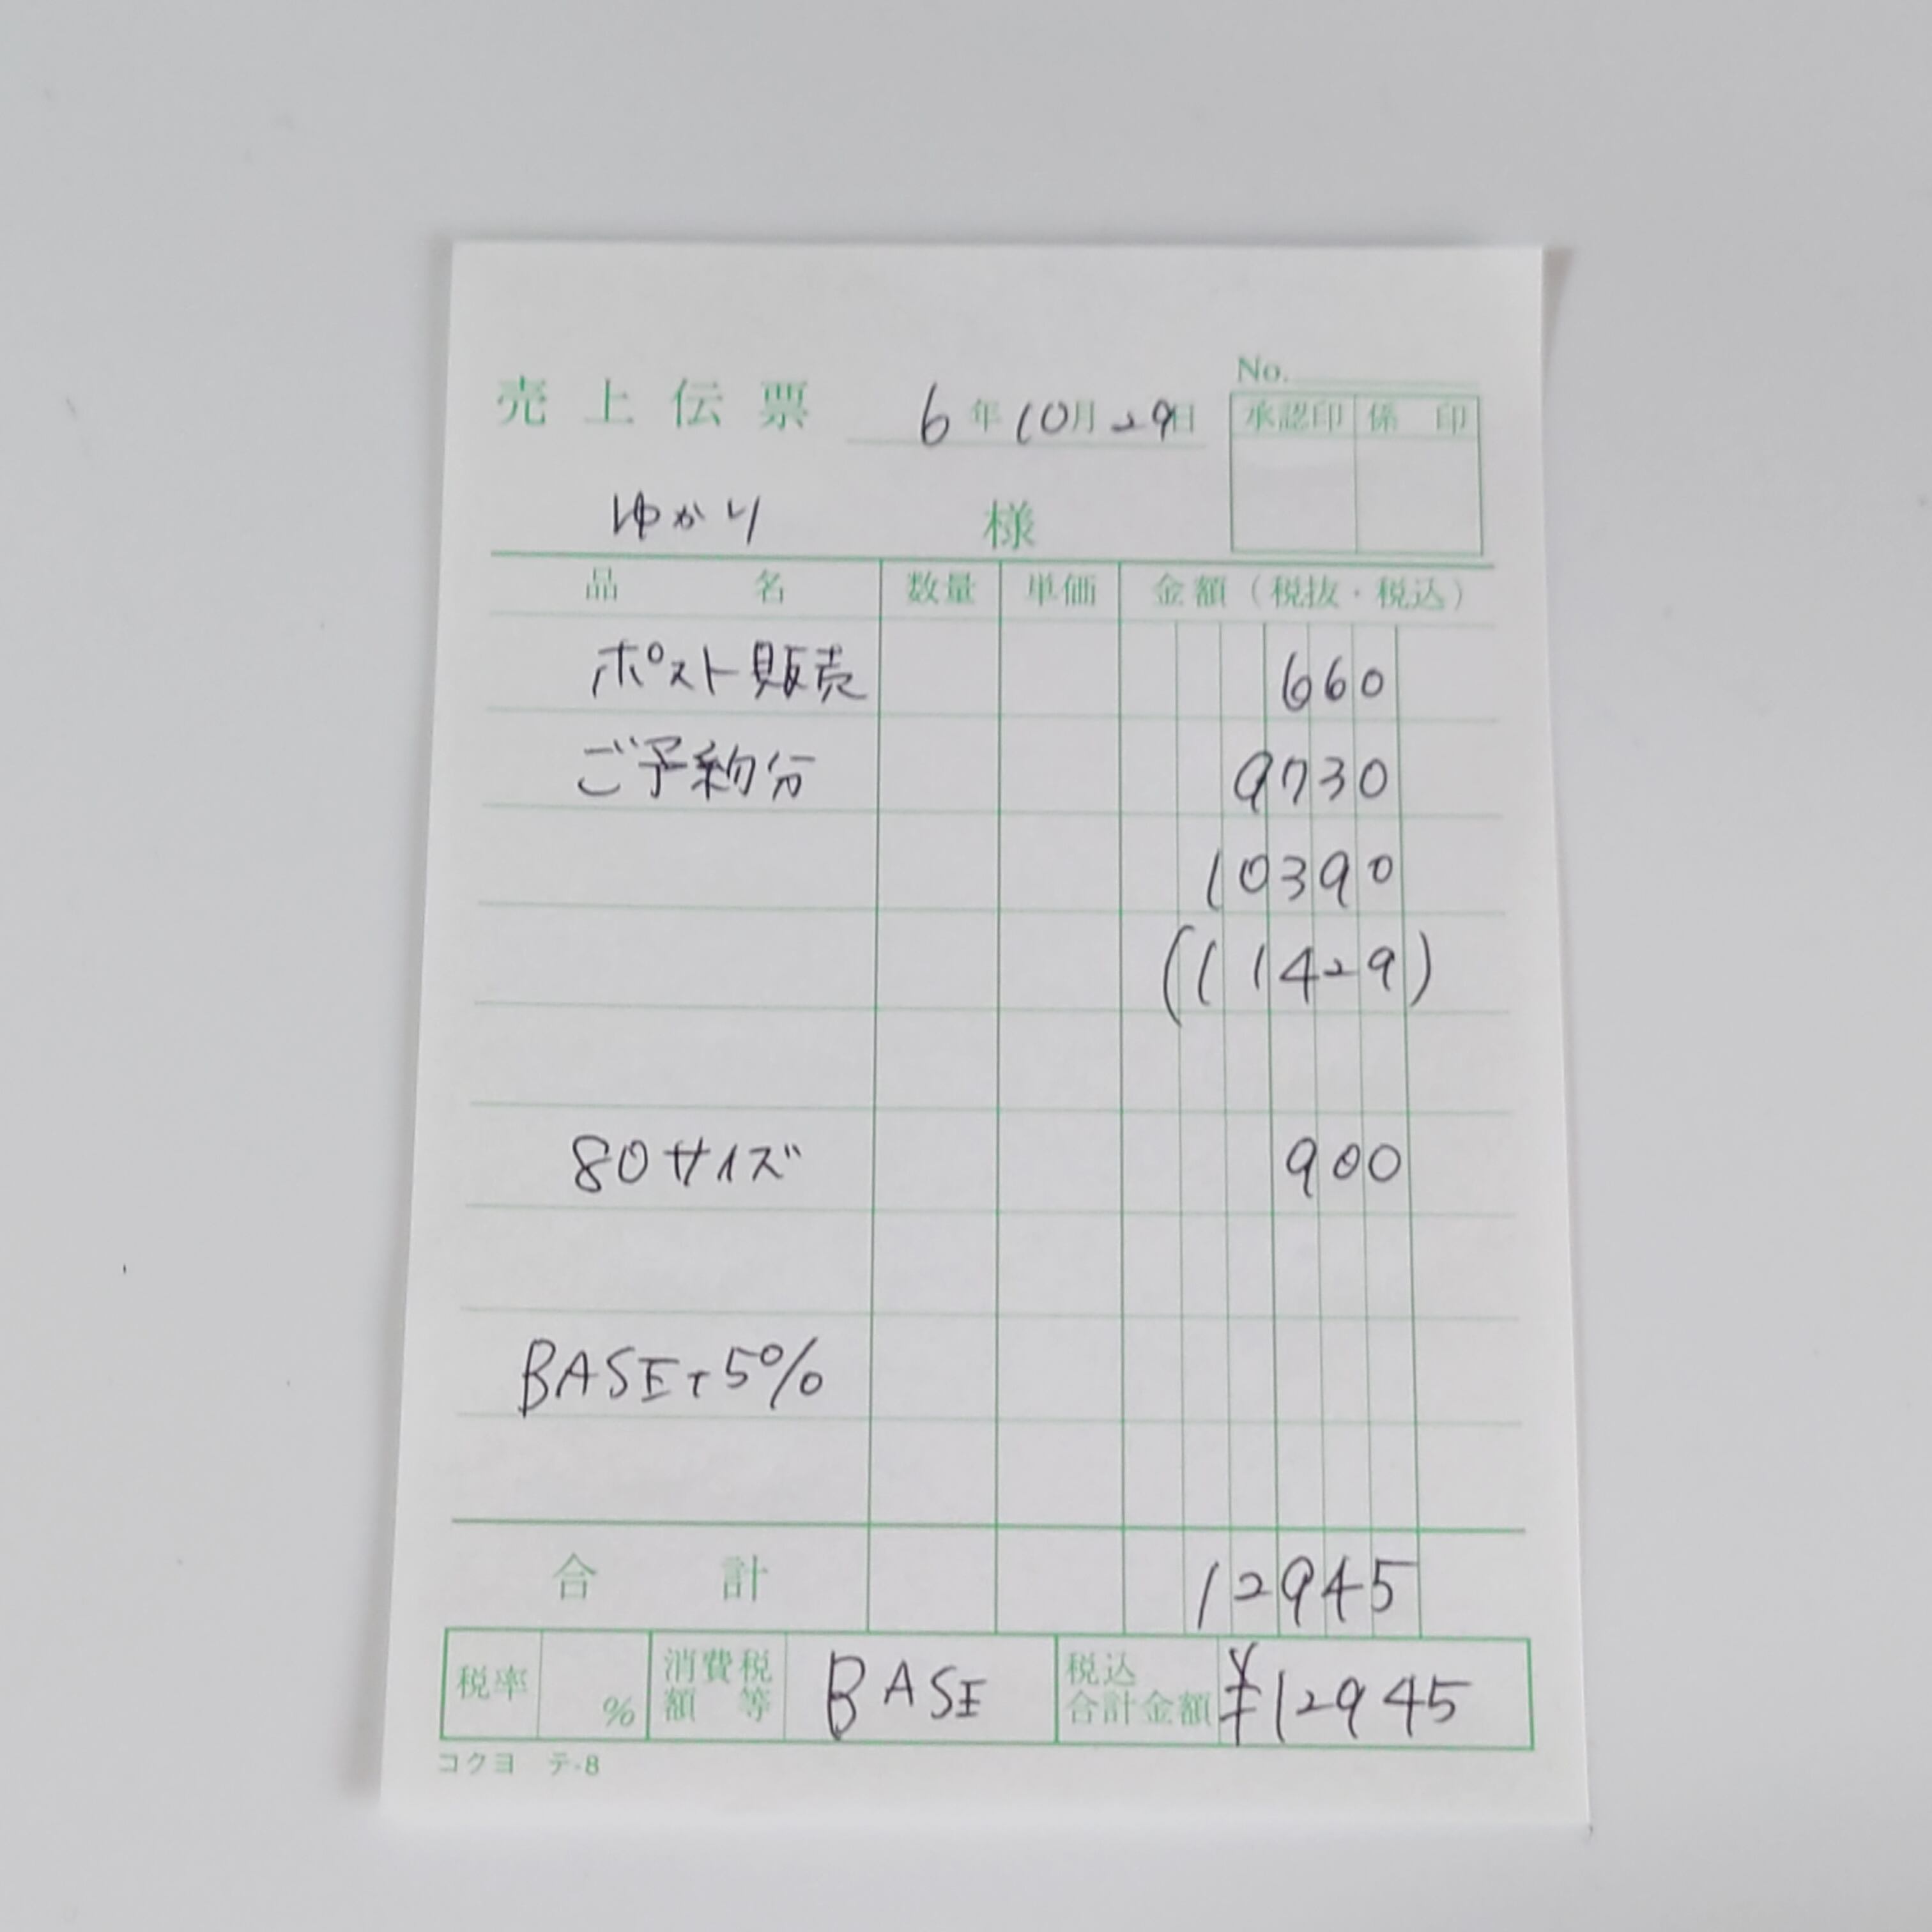 No.
売上伝票 6年10月29日
承認印 係印
ゆかり 様
品名 数量 単価 金額(税抜・税込)
ポスト販売 660
ご予約分 9730
10390
(11429)
80サイズ 900
BASE+5%
合計 12945
税率 % 消費税額等 BASE 税込合計金額 ¥12945
コクヨ テ-8